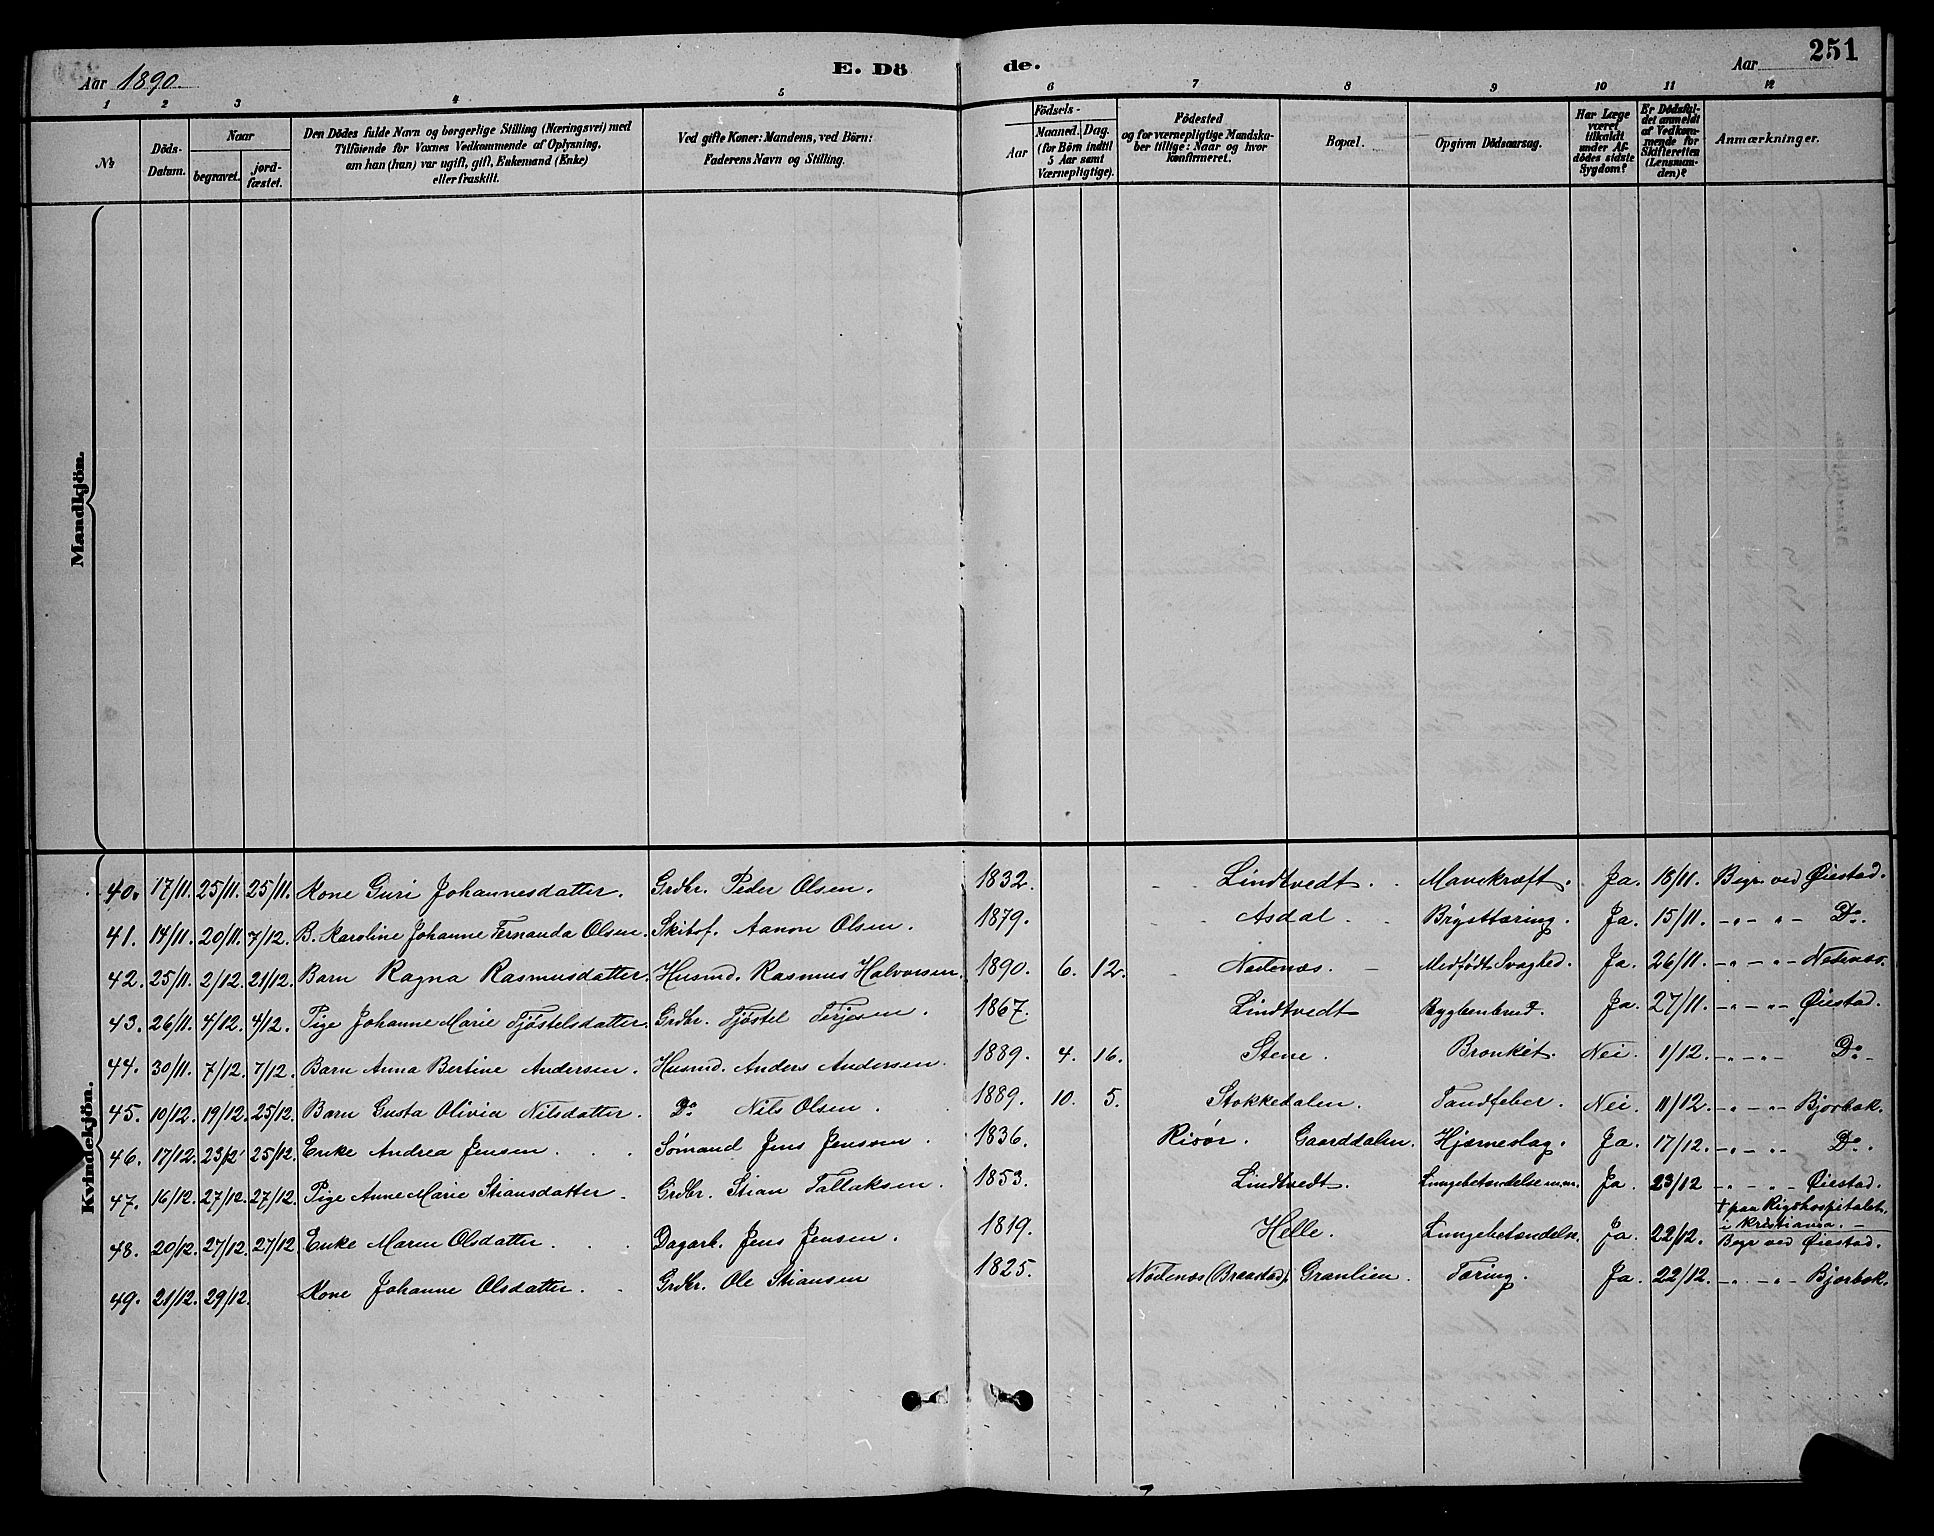 Aar 1890. E. Dö de. Aar 251
1 2 3 4 5 6 7 8 9 10 11 12
№ Döds-Datum. Naar begravet. jord-fæstet. Den Dödes fulde Navn og borgerlige Stilling (Næringsvei) med Tilföiende for Voxnes Vedkommende af Oplysning, om han (hun) var ugift, gift, Enkemand (Enke) eller fraskilt. Ved gifte Koner: Mandens, ved Börn: Faderens Navn og Stilling. Födsels- Aar Maaned. Dag. (for Börn indtil 5 Aar samt Værnepligtige). Födested og for værnepligtige Mandskaber tillige: Naar og hvor konfirmeret. Bopæl. Opgiven Dödsaarsag. Har Læge været tilkaldt under Afdödes sidste Sygdom? Er Dödsfaldet anmeldt af Vedkommende for Skifteretten (Lensmanden)? Anmærkninger.
Mandkjön.
Kvindekjön.
40. 17/11. 25/11. 25/11. Kone Guri Johannesdatter. Grdbr. Peder Olsen. 1832. Lindtvedt. Mavekræft. Ja. 18/11. Begr. ved Øiestad.
41. 14/11. 20/11. 7/12. B. Karoline Johanne Fernanda Olsen. Skibsf. Aanon Olsen. 1879. Asdal. Brysttæring. Ja. 15/11. -„- „- Do.
42. 25/11. 2/12. 21/12. Barn Ragna Rasmusdatter. Husmd. Rasmus Halvorsen. 1890. 6. 12. Nedenæs. Medfødt Svaghed. Ja. 26/11. -„- „- Nedenæs.
43. 26/11. 4/12. 4/12. Pige Johanne Marie Tjøstelsdatter. Grdbr. Tjøstel Terjesen. 1867. Lindtvedt Rygbenbrud. Ja. 27/11. -„- „- Øiestad.
44. 30/11. 7/12. 7/12. Barn Anna Bertine Andersen. Husmd. Anders Andersen. 1889. 4. 16. Stene. Bronkit. Nei. 1/12. -„- „- Do
45. 10/12. 19/12. 25/12. Barn Gusta Olivia Nilsdatter. Do Nils Olsen. 1889. 10. 5. Stokkedalen. Tandfeber. Nei. 11/12. -„- „- Bjorbæk.
46. 17/12. 23/12 25/12. Enke Andrea Jensen. Sømand Jens Jensen. 1836. Risør. Gaarddalen. Hjærneslag. Ja. 17/12. -„- „- Do.
47. 16/12. 27/12. 27/12. Pige Anne Marie Stiansdatter. Grdbr. Stian Tallaksen. 1853. Lindtvedt. Lungebetændelse m.m. Ja. 23/12 -„- „- Øiestad.
† paa Rigshospitalet i Kristiania.
48. 20/12. 27/12. 27/12 Enke Maren Olsdatter. Dagarb. Jens Jensen. 1819. Helle. Lungebetændelse. Ja. 22/12. Begr. ved Øiestad.
49. 21/12. 29/12. Kone Johanne Olsdatter. Grdbr. Ole Stiansen 1825. Nedenæs (Braastad). Granlien. Tæring. Ja. 22/12. -„- „- Bjorbæk.